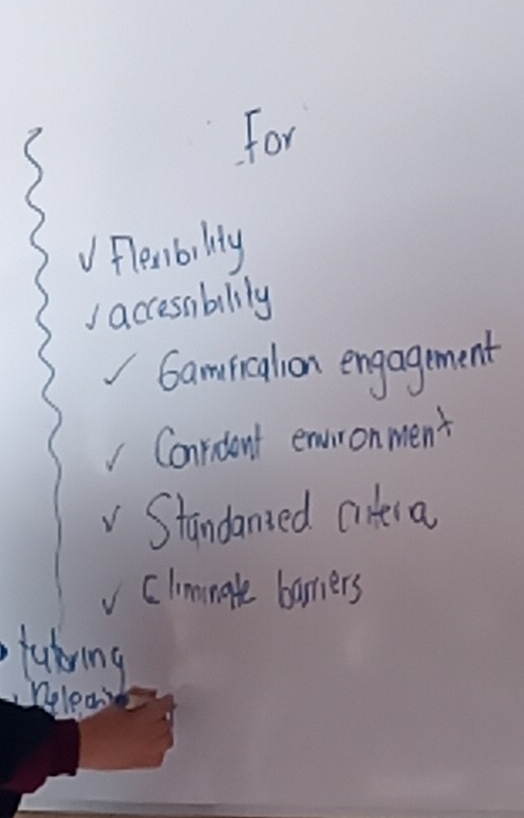 For
✓ Flexibility
✓ accessibility
✓ Gamification engagement
✓ Confident environment
✓ Standarized criteria
✓ Eliminate barriers
• tutoring